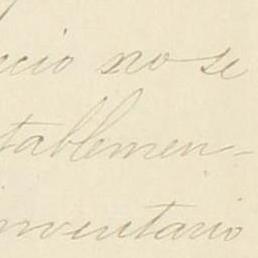 cio no se
tablemen-
inventario